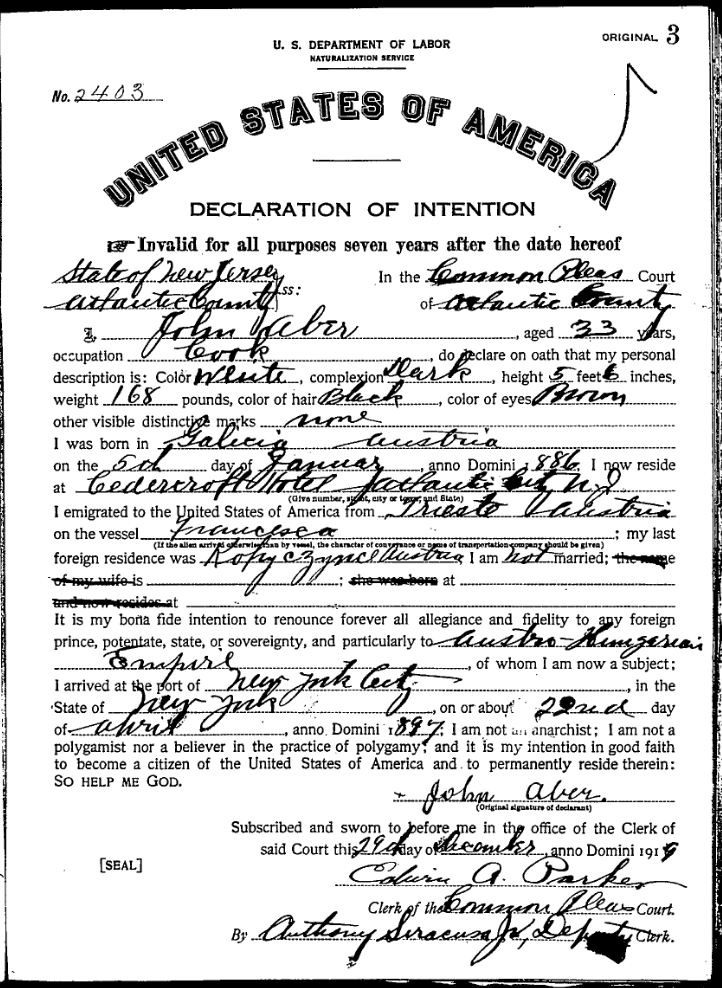 ORIGINAL 3
U. S. DEPARTMENT OF LABOR
NATURALIZATION SERVICE
No. 2403
UNITED STATES OF AMERICA
DECLARATION OF INTENTION
☞ Invalid for all purposes seven years after the date hereof
State of New Jersey
Atlantic County ss:
In the Common Pleas Court
of Atlantic County
I, John Aber, aged 33 years,
occupation Cook, do declare on oath that my personal
description is: Color White, complexion Dark, height 5 feet 6 inches,
weight 168 pounds, color of hair Black, color of eyes Brown
other visible distinctive marks none
I was born in Galicia Austria
on the 5th day of Januar, anno Domini 1886. I now reside
at Cedercroft Hotel Atlantic City N.J
(Give number, street, city or town, and State)
I emigrated to the United States of America from Triesto Austria
on the vessel Francesca; my last
(If the alien arrived otherwise than by vessel, the character of conveyance or name of transportation company should be given)
foreign residence was Kopyczynce Austria I am not married; the name
of my wife is ; she was born at
and now resides at
It is my bona fide intention to renounce forever all allegiance and fidelity to any foreign
prince, potentate, state, or sovereignty, and particularly to Austro-Hungarian
Empire, of whom I am now a subject;
I arrived at the port of New York City, in the
State of New York, on or about 22nd day
of April, anno Domini 1897; I am not an anarchist; I am not a
polygamist nor a believer in the practice of polygamy; and it is my intention in good faith
to become a citizen of the United States of America and to permanently reside therein:
SO HELP ME GOD.
John Aber.
(Original signature of declarant)
Subscribed and sworn to before me in the office of the Clerk of
said Court this 29th day of December, anno Domini 1919
[SEAL]
Edwin A. Parker
Clerk of the Common Pleas Court.
By Anthony Siracusa Jr, Deputy Clerk.